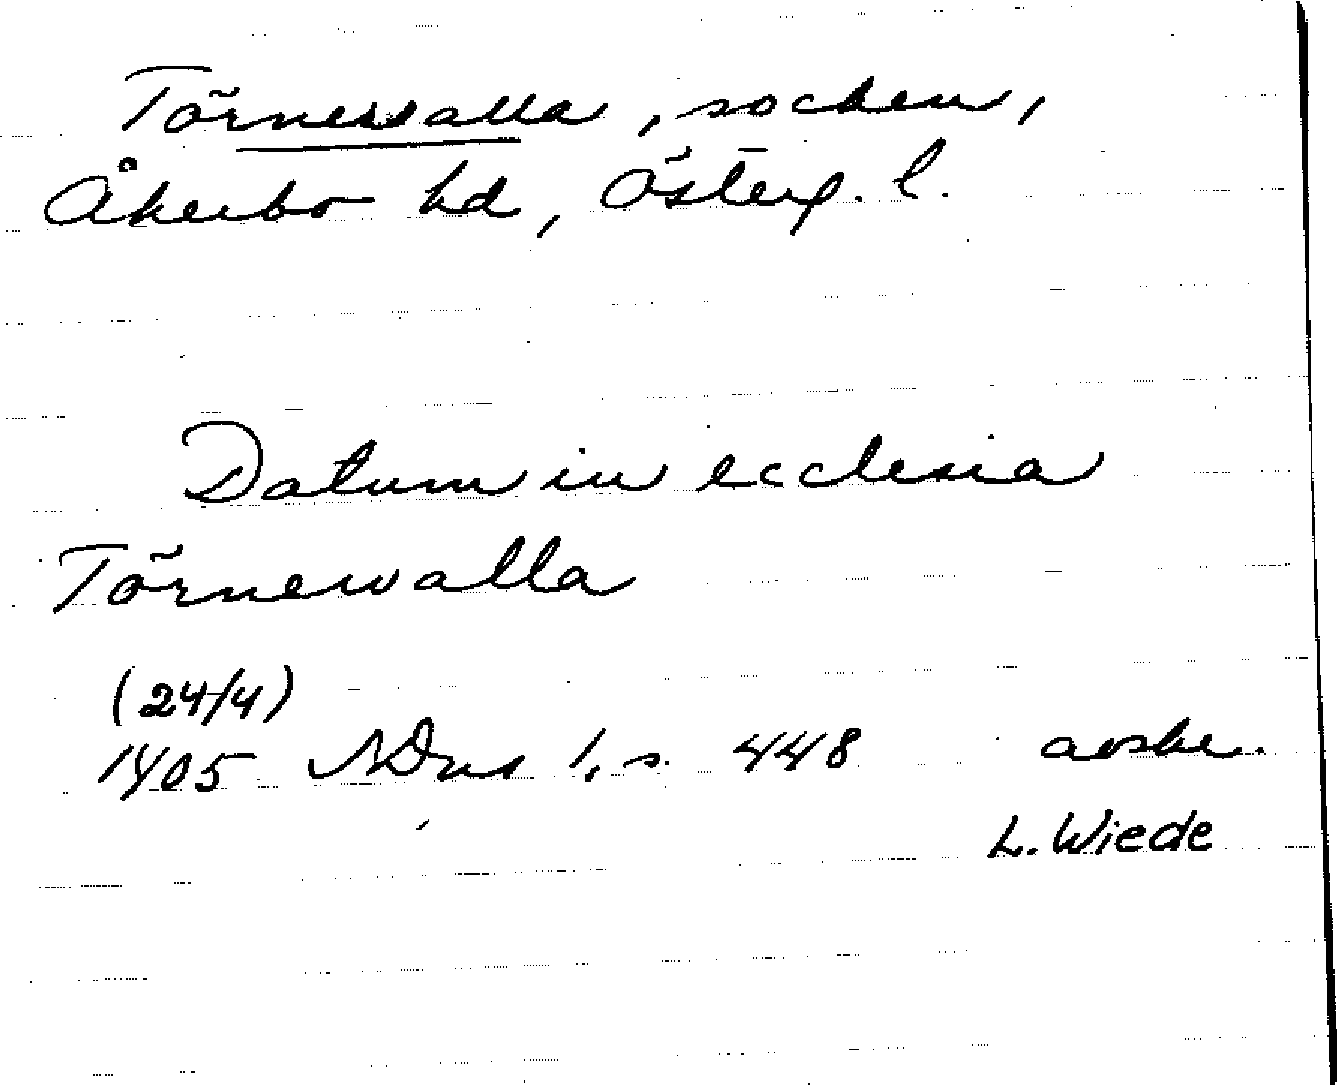 Törnevalla, socken,
Åkerbo hd, Österg. l.
Datum in ecclesia
Törnewalla
(24/4)
1405 NDns 1, s. 448 avskr.
L. Wiede